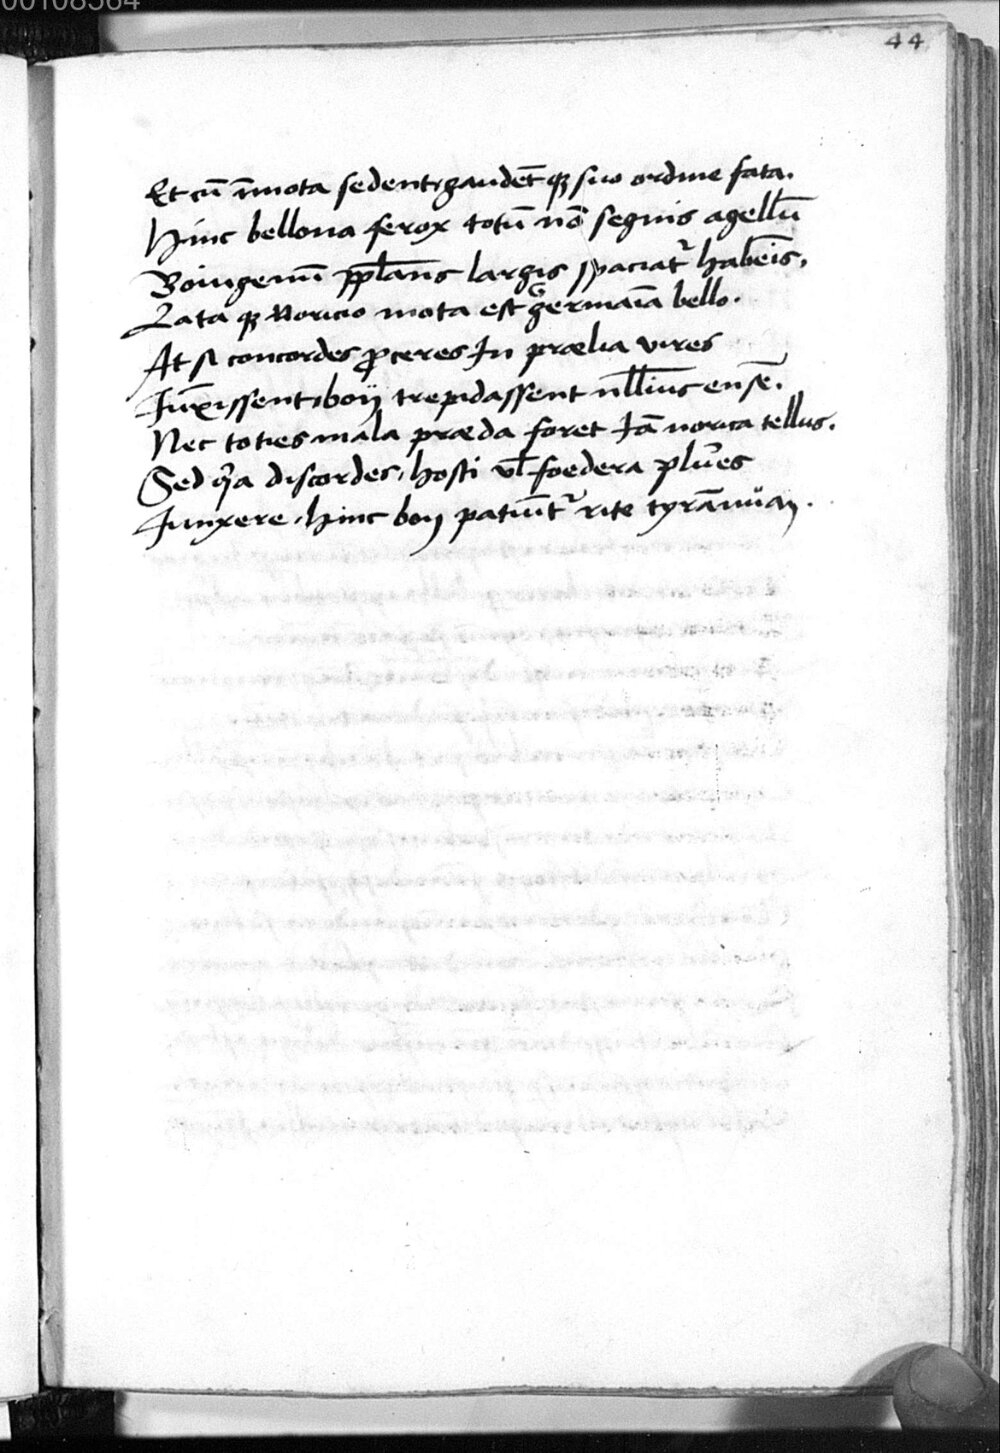 00108564
44
Et cū īmota sedent, gaudēt qꝫ suo ordine fata.
Hinc bellona ferox totū nō segnis agellū
Boiugenūm pp̄lans largis spaciat᷑ habēis,
Lata qꝫ Noricio mota est Germāia bello.
At si concordes ꝓceres In prælia vires
Iūxissent, boij trepidassent nullius ensē.
Nec toties mala præda foret Iā norica tellus.
Sed qͥa discordes, hosti vl̄ foedera plures
Iunxere, hinc boij patiūt᷑ rite tyrānum.